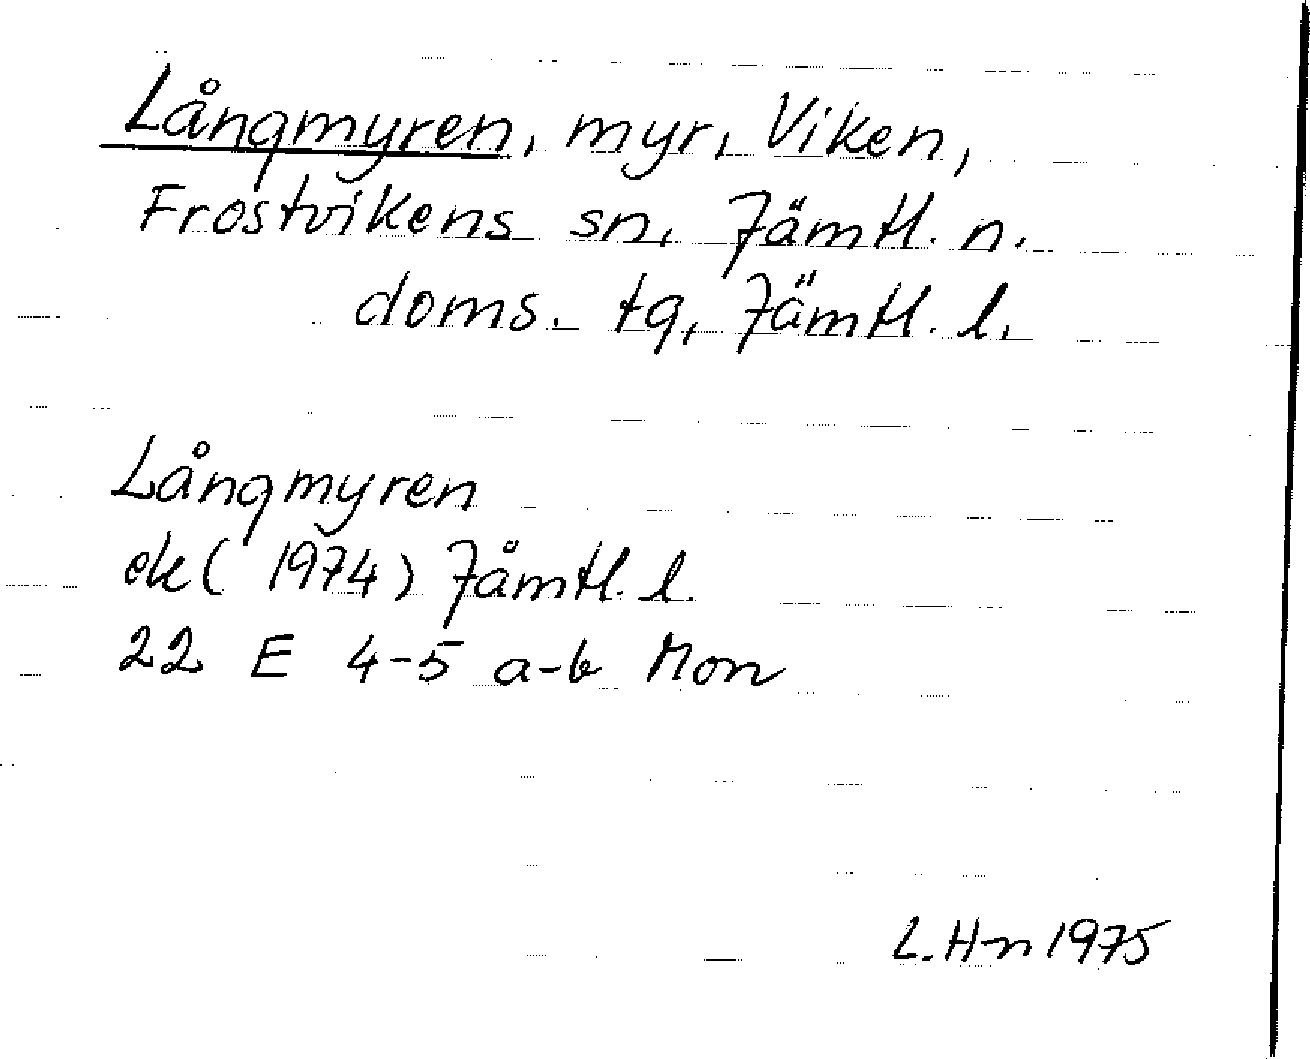 Långmyren, myr, Viken,
Frostvikens sn, Jämtl. n.
doms. tg, Jämtl. l.
Långmyren
ek (1974) Jämtl. l.
22 E 4-5 a-b Mon
L. H-n 1975